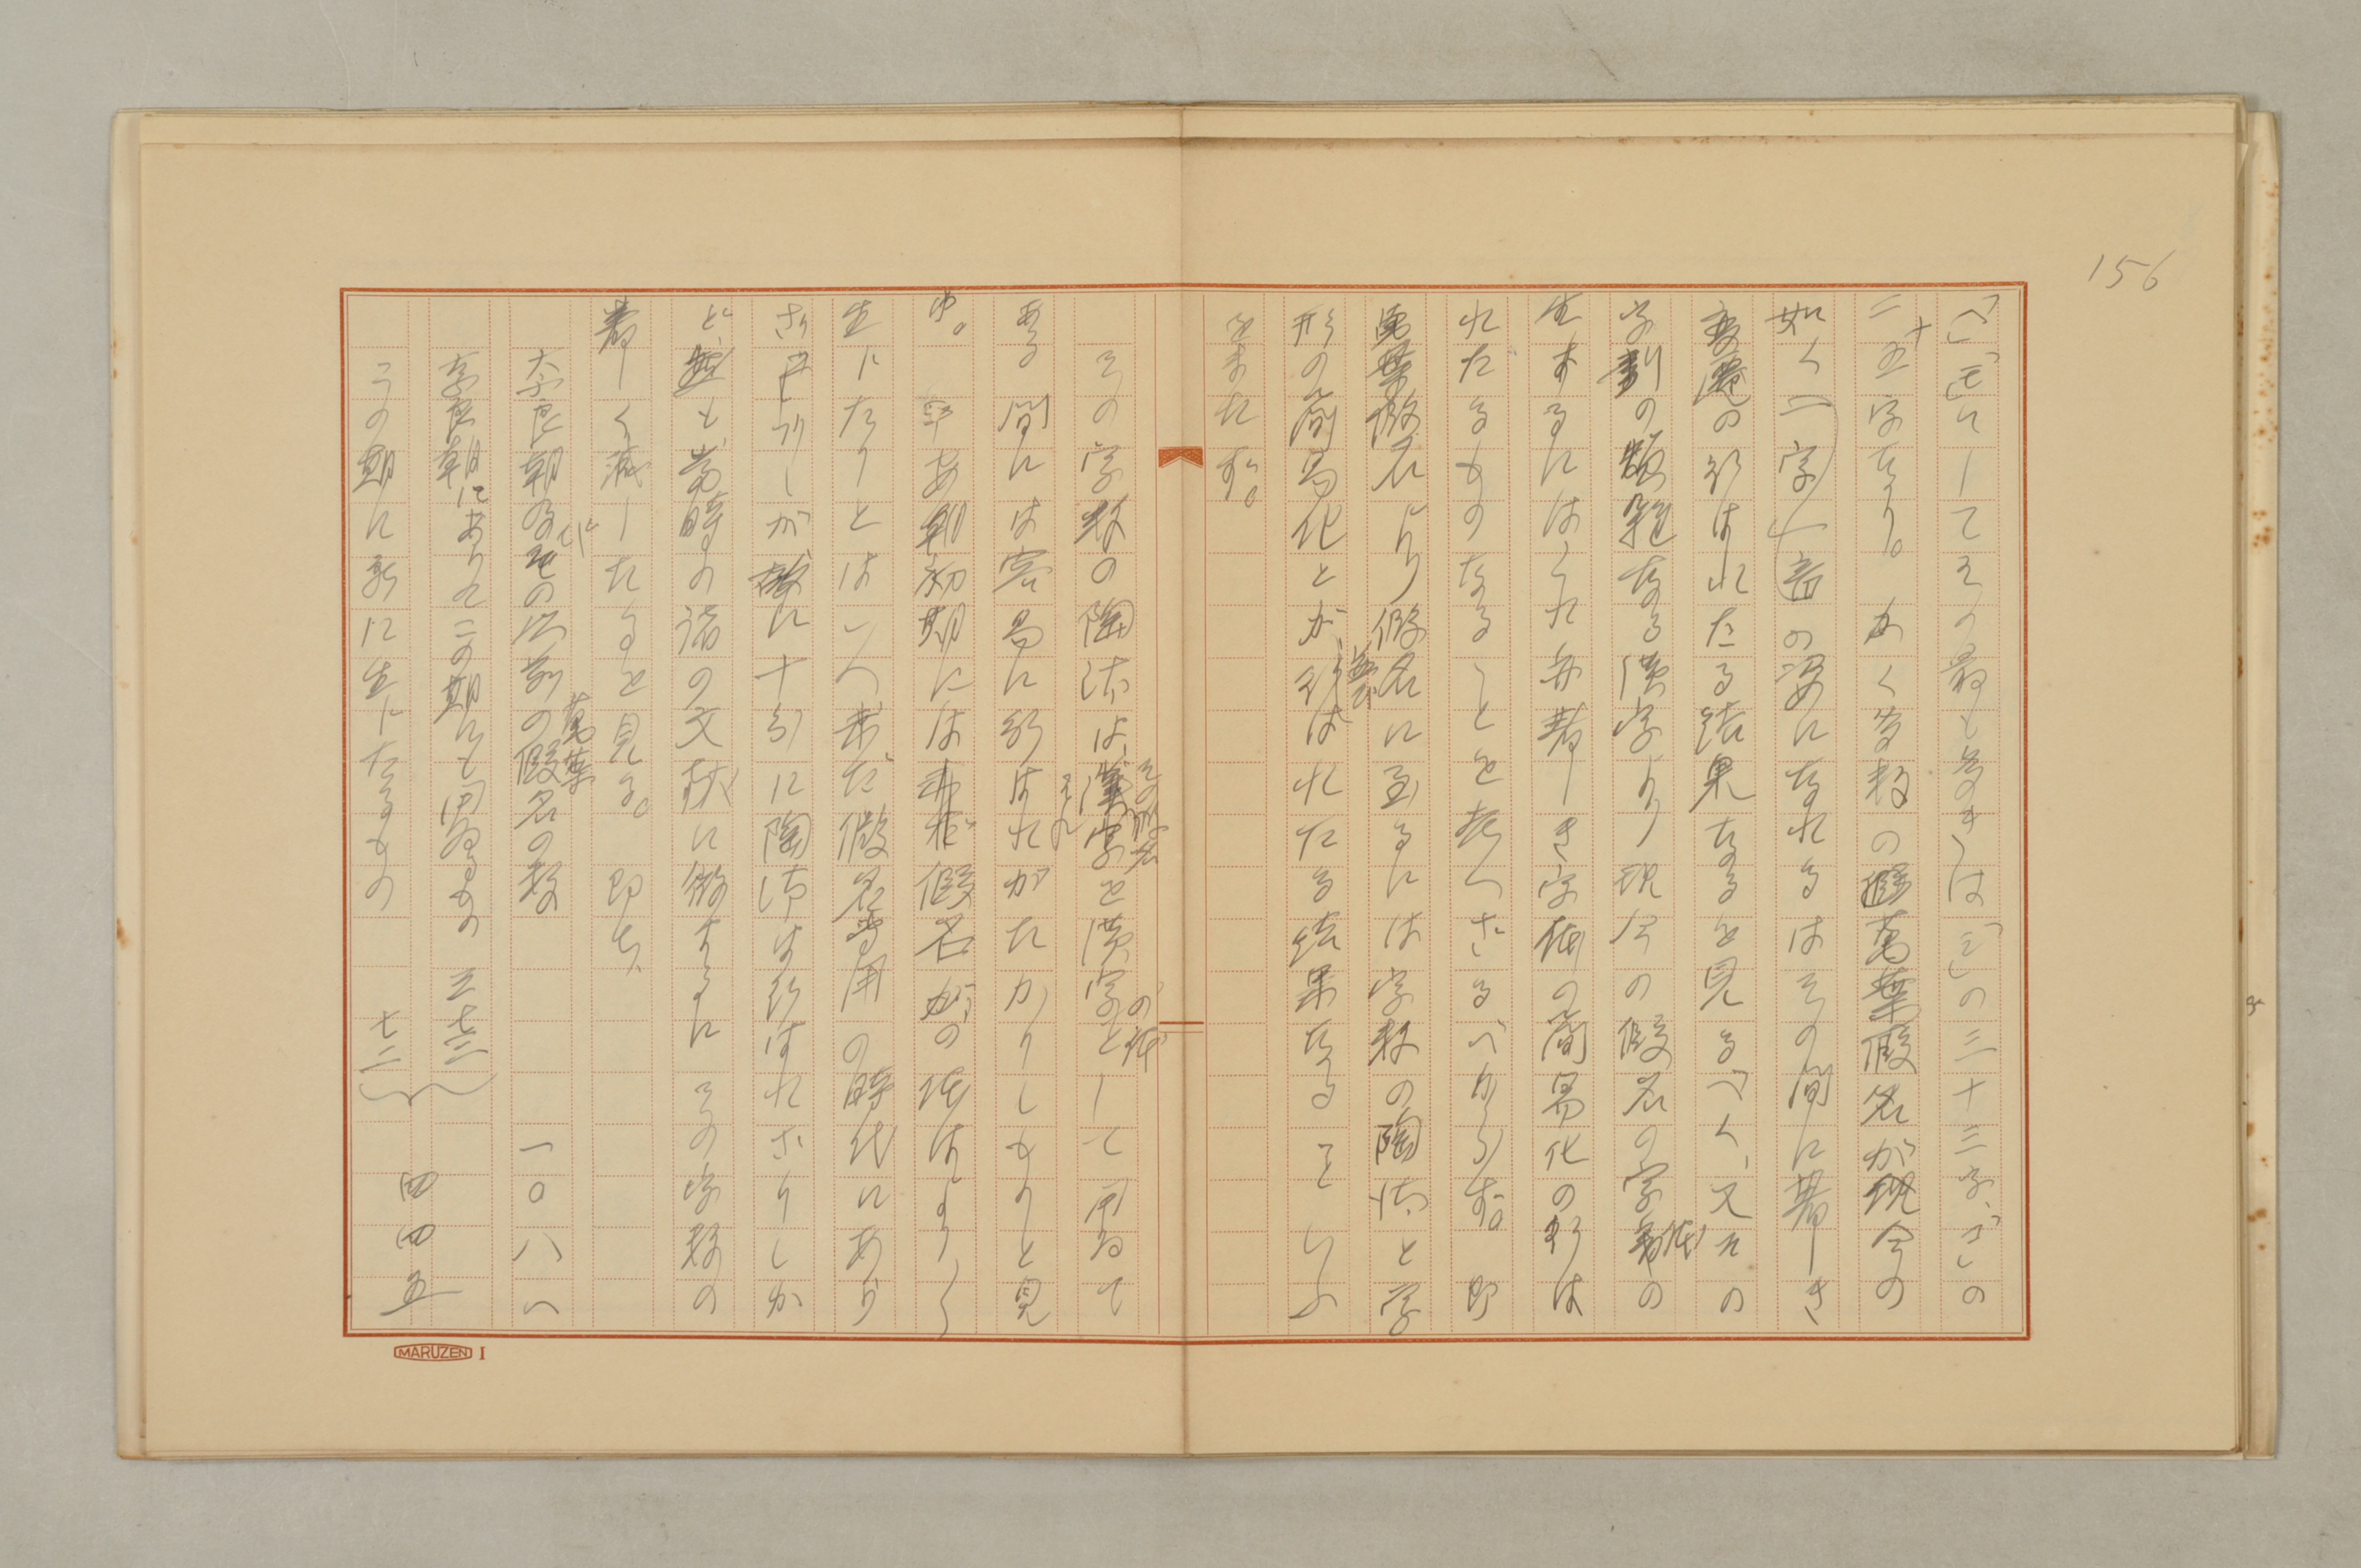 156
「へ」「も」にしてその最も多きは「み」の三十三字、「ご」の
二十五字なり。かく多数の萬葉假名が現今の
如く一字一音の姿になれるはその間に著しき
変遷の行はれたる結果なるを見るべく、又その
字劃の煩雑なる漢字より現今の假名の字体の
生ずるにはこれ亦著しき字体の簡易化の行は
れたるものなることを考へざるべからず。即
萬葉假名より假名に至るには字数の陶汰と字
形の簡易化とが、並び行はれたる結果なることいふ
をまたず。
その字数の陶汰は、その假名を漢字の体として用ゐて
ある間には容易に行はれがたかりしものと見
ゆ。平安朝初期には未だ假名がの体はすり〳〵
生じたりとはいへ、未だ假名専用の時代にあら
ざりしが故に十分に陶汰は行はれざりしか
ど、然も、当時の諸の文献に徴するにその字数の
著しく減じたるを見る。即ち、
奈良朝及びその以前の萬葉假名の数 一〇八八
奈良朝にありてこの期にも用ゐるもの 三七三
この期に新に生じたるもの 七二
四四五
MARUZEN I